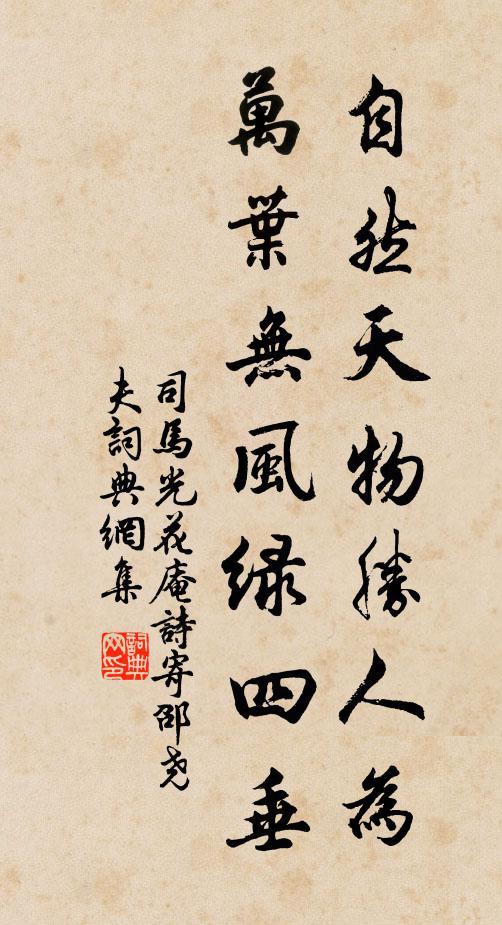 自然天物勝人為
萬葉無風綠四垂
司馬光花庵詩寄邵堯
夫詞典網集
詞典網印